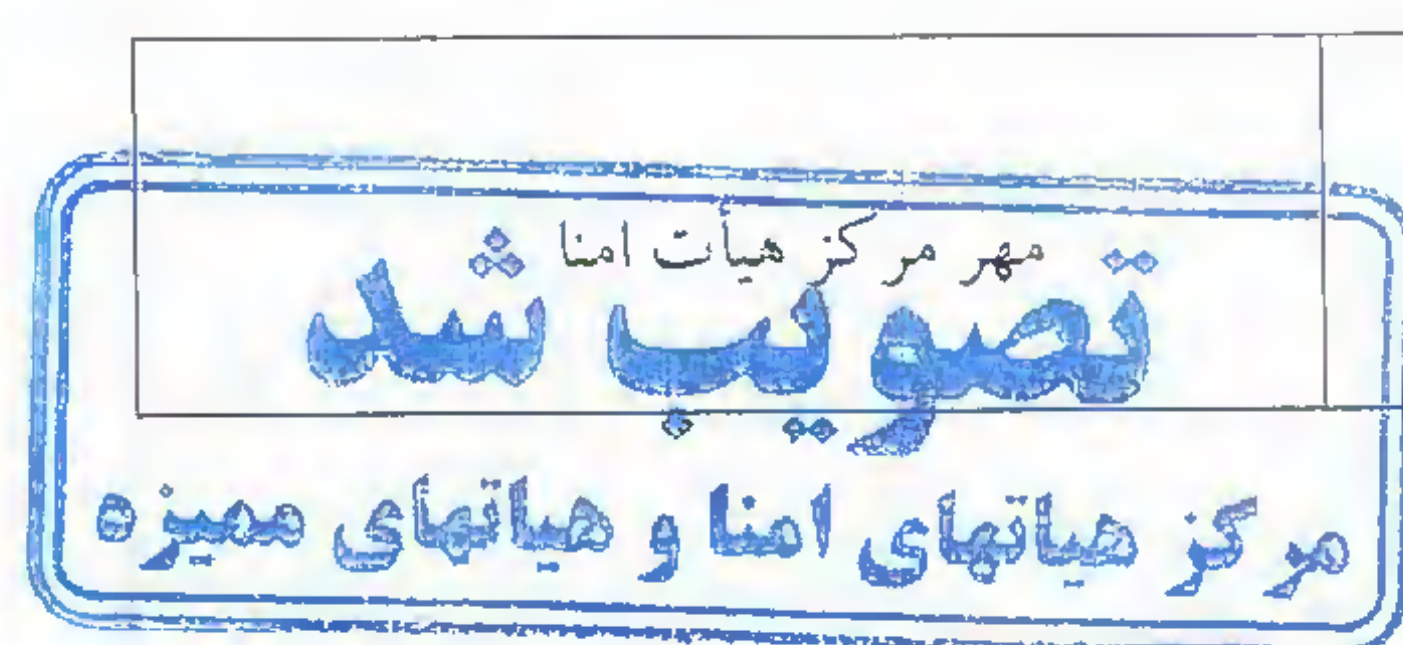 مهر مرکز هیأت امنا
تصویب شد
مرکز هیاتهای امنا و هیاتهای ممیزه